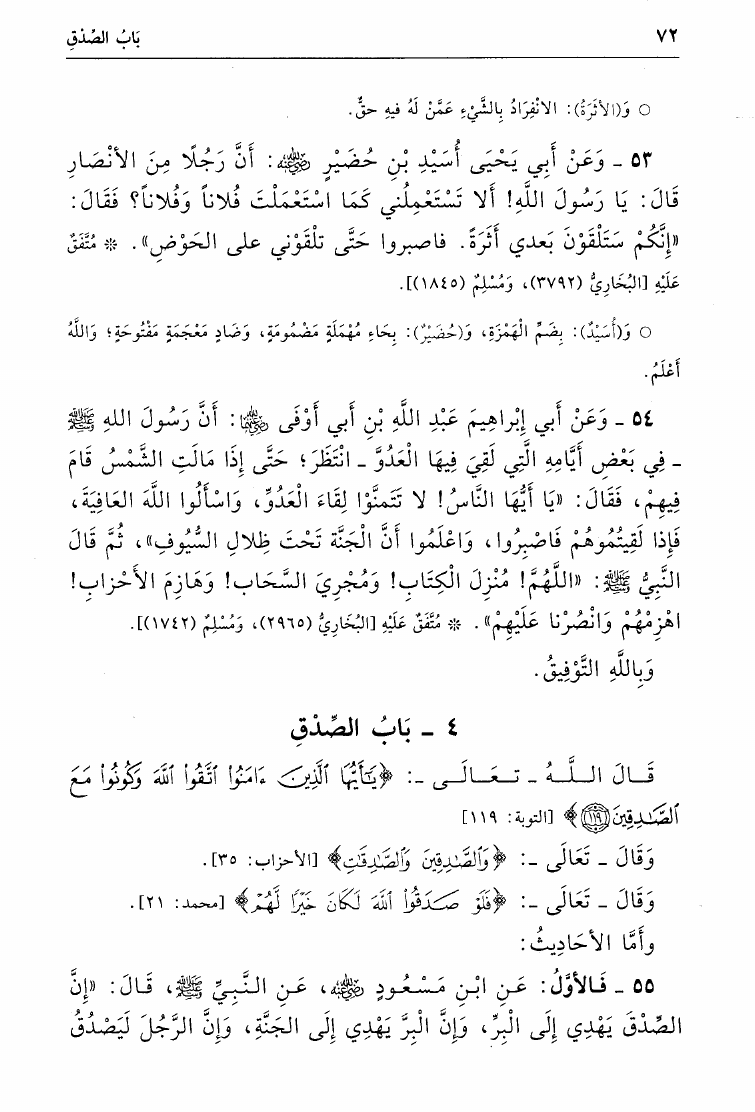 ٧٢ بَابُ الصِّدْقِ
○ وَ(الأَثَرَةُ): الانْفِرَادُ بِالشَّيْءِ عَمَّنْ لَهُ فيهِ حقٌّ.
٥٣ ـ وَعَنْ أَبي يَحْيَى أُسَيْدِ بْنِ حُضَيْرٍ رضي الله عنه: أَنَّ رَجُلًا مِنَ الأَنْصَارِ
قَالَ: يَا رَسُولَ اللَّهِ! أَلا تَسْتَعْمِلُني كَمَا اسْتَعْمَلْتَ فُلاناً وَفُلاناً؟ فَقَالَ:
«إِنَّكُمْ سَتَلْقَوْنَ بَعدي أَثَرَةً. فاصبروا حَتَّى تلْقَوْني على الحَوْضِ». * مُتَّفَقٌ
عَلَيْهِ [البُخَارِيُّ (٣٧٩٢)، وَمُسْلِمٌ (١٨٤٥)].
○ وَ(أُسَيْدٌ): بِضَمِّ الْهَمْزَةِ، وَ(حُضَيْرٌ): بِحَاءٍ مُهْمَلَةٍ مَضْمُومَةٍ، وَضَادٍ مَعْجَمَةٍ مَفْتُوحَةٍ؛ وَاللَّهُ
أَعْلَمُ.
٥٤ ـ وَعَنْ أَبي إِبْراهِيمَ عَبْدِ اللَّهِ بْنِ أَبي أَوْفَى رضي الله عنهما: أَنَّ رَسُولَ اللهِ ﷺ
ـ فِي بَعْضِ أَيَّامِهِ الَّتِي لَقِيَ فِيهَا الْعَدُوَّ ـ انْتَظَرَ؛ حَتَّى إِذَا مَالَتِ الشَّمْسُ قَامَ
فِيهِمْ، فَقَالَ: «يَا أَيُّهَا النَّاسُ! لا تَتَمنَّوْا لِقَاءَ الْعَدُوِّ، وَاسْأَلُوا اللَّهَ العَافِيَةَ،
فَإِذا لَقِيتُمُوهُمْ فَاصْبِرُوا، وَاعْلَمُوا أَنَّ الْجَنَّة تَحْتَ ظِلالِ السُّيُوفِ»، ثُمَّ قَالَ
النَّبِيُّ ﷺ: «اللَّهُمَّ! مُنْزِلَ الْكِتَابِ! ومُجْرِيَ السَّحَاب! وَهَازِمَ الأَحْزابِ!
اهْزِمْهُمْ وَانْصُرْنا عَلَيْهِمْ». * مُتَّفَقٌ عَلَيْهِ [البُخَارِيُّ (٢٩٦٥)، وَمُسْلِمٌ (١٧٤٢)].
وَبِاللَّهِ التَّوْفِيقُ.
٤ ـ بَابُ الصِّدْقِ
قَـالَ الـلَّـهُ ـ تـعَـالَـى ـ: ﴿يَٰٓأَيُّهَا ٱلَّذِينَ ءَامَنُوا۟ ٱتَّقُوا۟ ٱللَّهَ وَكُونُوا۟ مَعَ
ٱلصَّٰدِقِينَ ١١٩﴾ [التوبة: ١١٩]
وَقَالَ ـ تَعَالَى ـ: ﴿وَٱلصَّٰدِقِينَ وَٱلصَّٰدِقَٰتِ﴾ [الأحزاب: ٣٥].
وَقَالَ ـ تَعَالَى ـ: ﴿فَلَوْ صَدَقُوا۟ ٱللَّهَ لَكَانَ خَيْرًا لَّهُمْ﴾ [محمد: ٢١].
وأَمَّا الأَحَاديثُ:
٥٥ ـ فَالأوَّلُ: عَنِ ابْنِ مَسْعُودٍ رضي الله عنه، عَنِ النَّبِيِّ ﷺ، قَالَ: «إِنَّ
الصِّدْقَ يَهْدِي إِلَى الْبِرِّ، وَإِنَّ الْبِرَّ يَهْدِي إِلَى الجَنَّةِ، وَإِنَّ الرَّجُلَ لَيَصْدُقُ